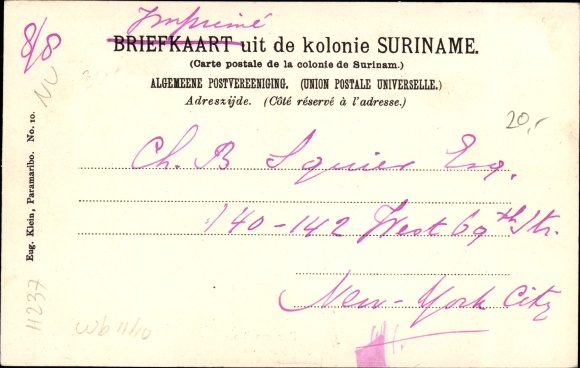 Imprimé
BRIEFKAART uit de kolonie SURINAME.
(Carte postale de la colonie de Surinam.)
ALGEMEENE POSTVEREENIGING. (UNION POSTALE UNIVERSELLE.)
Adreszijde. (Côté réservé à l'adresse.)
8/8
20,-
Ch. B Squier Esq.
140-142 West 69th Str.
New-York City
Eug. Klein, Paramaribo. No. 10.
11237
Wb 11/10